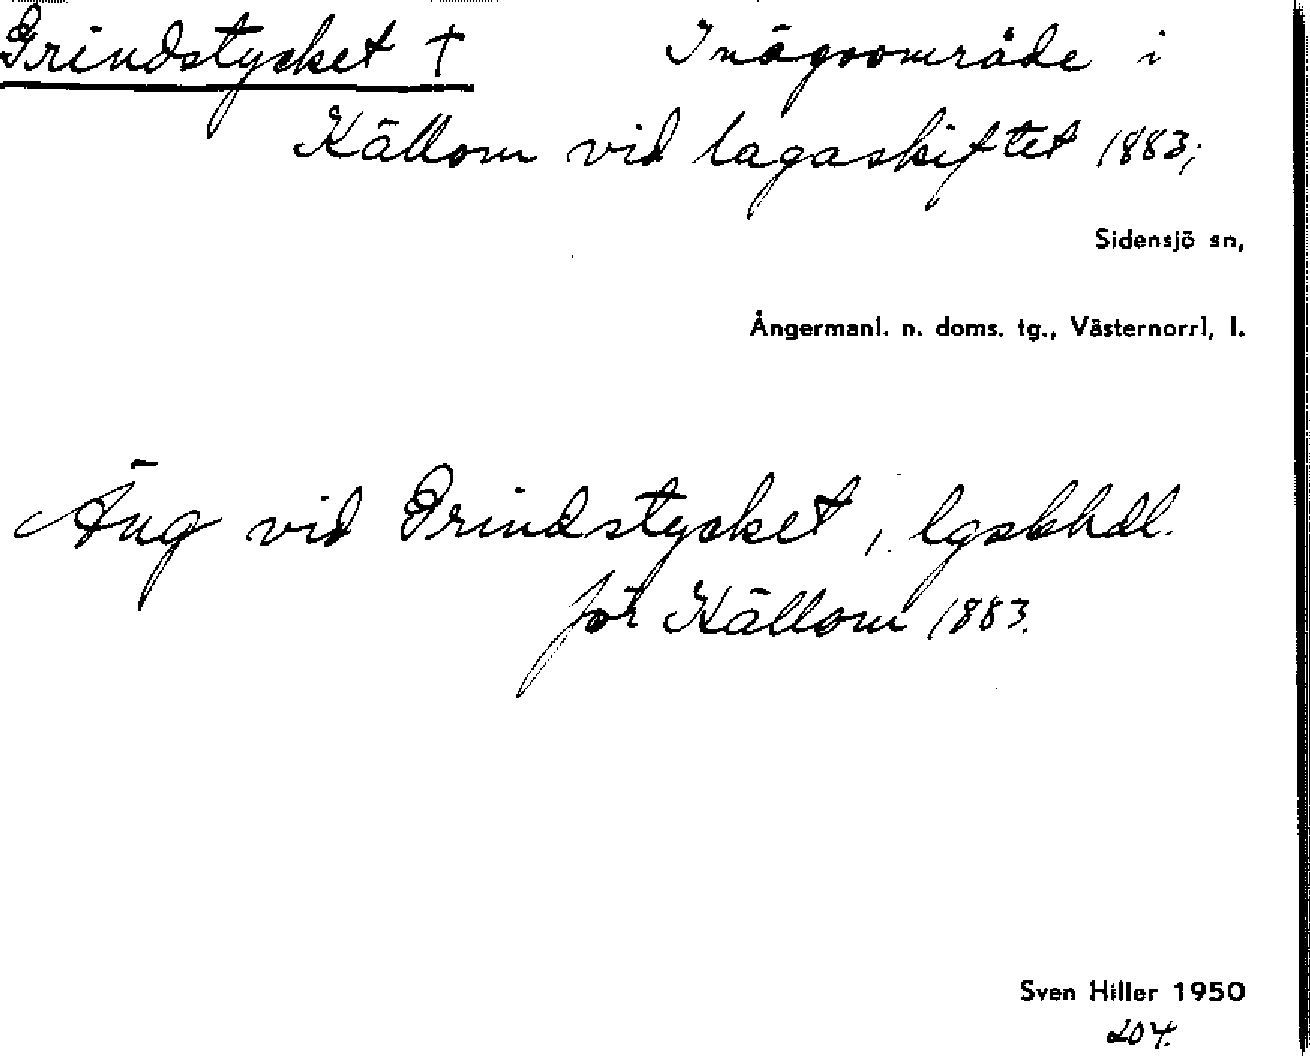 Grindstycket † Inägoområde i
Källom vid lagaskiftet 1883;
Sidensjö sn,
Ångermanl. n. doms. tg., Västernorrl, l.
Äng vid Grindstycket, lgskhdl.
för Källom 1883.
Sven Hiller 1950
204.